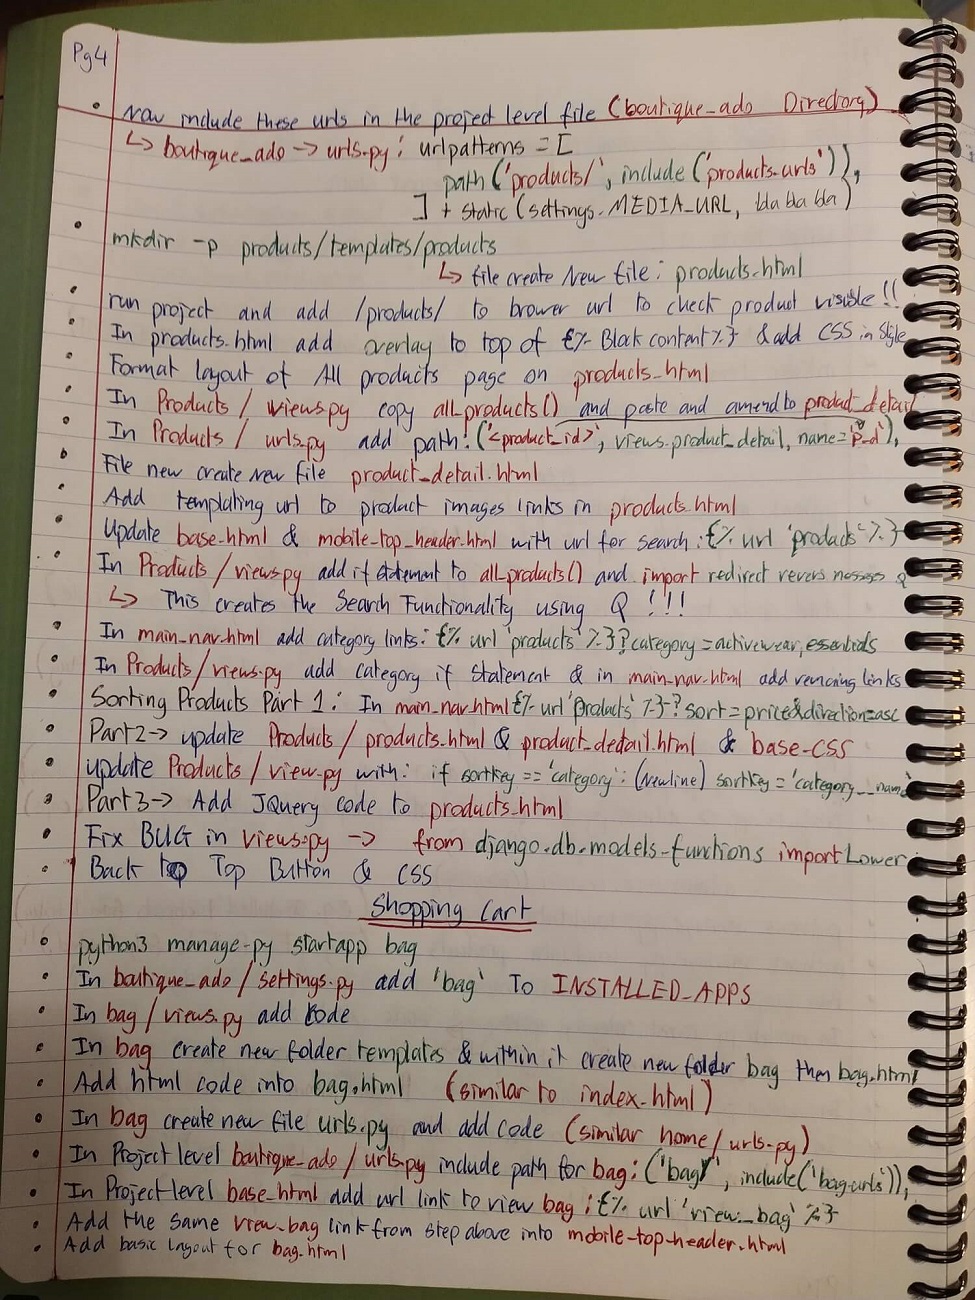 Pg4
• Now include these urls in the project level file (boutique_ado Directory)
↳ boutique_ado → urls.py : urlpatterns = [
path('products/', include('products.urls')),
] + static(settings.MEDIA_URL, bla bla bla)
• mkdir -p products/templates/products
↳ file create New file : products.html
• run project and add /products/ to brower url to check product visible!!
• In products.html add overlay to top of {% Block content %} & add CSS in Style
• Format layout of All products page on products.html
• In Products / views.py copy all_products() and paste and amend to product_detail
• In Products / urls.py add path: ('<product_id>', views.product_detail, name='p_d'),
• File new create new file product_detail.html
• Add templating url to product images links in products.html
• Update base.html & mobile-top_header.html with url for search : {% url 'products' %}
• In Products/views.py add if statement to all_products() and import redirect revers Q
↳ This creates the Search Functionality using Q !!!
• In main-nav.html add category links: {% url 'products' %}?category=activewear,essentials
• In Products/views.py add category if Statement & in main-nav.html add remaining links
• Sorting Products Part 1: In main_nav.html {% url 'Products' %}?sort=price&direction=asc
• Part2→ update Products / products.html & product_detail.html & base.css
• update Products / view.py with: if sortkey == 'category': (newline) sortkey = 'category__name'
• Part3→ Add JQuery code to products.html
• Fix BUG in views.py → from django.db.models.functions import Lower
• Back to Top Button & CSS
Shopping Cart
• python3 manage.py startapp bag
• In boutique_ado / settings.py add 'bag' To INSTALLED_APPS
• In bag / views.py add code
• In bag create new folder templates & within it create new folder bag then bag.html
• Add html code into bag.html (similar to index.html)
• In bag create new file urls.py and add code (similar home/urls.py)
• In Project level boutique_ado / urls.py include path for bag: ('bag/', include('bag.urls')),
• In Project level base.html add url link to view bag : {% url 'view_bag' %}
• Add the same view_bag link from step above into mobile-top-header.html
• Add basic layout for bag.html